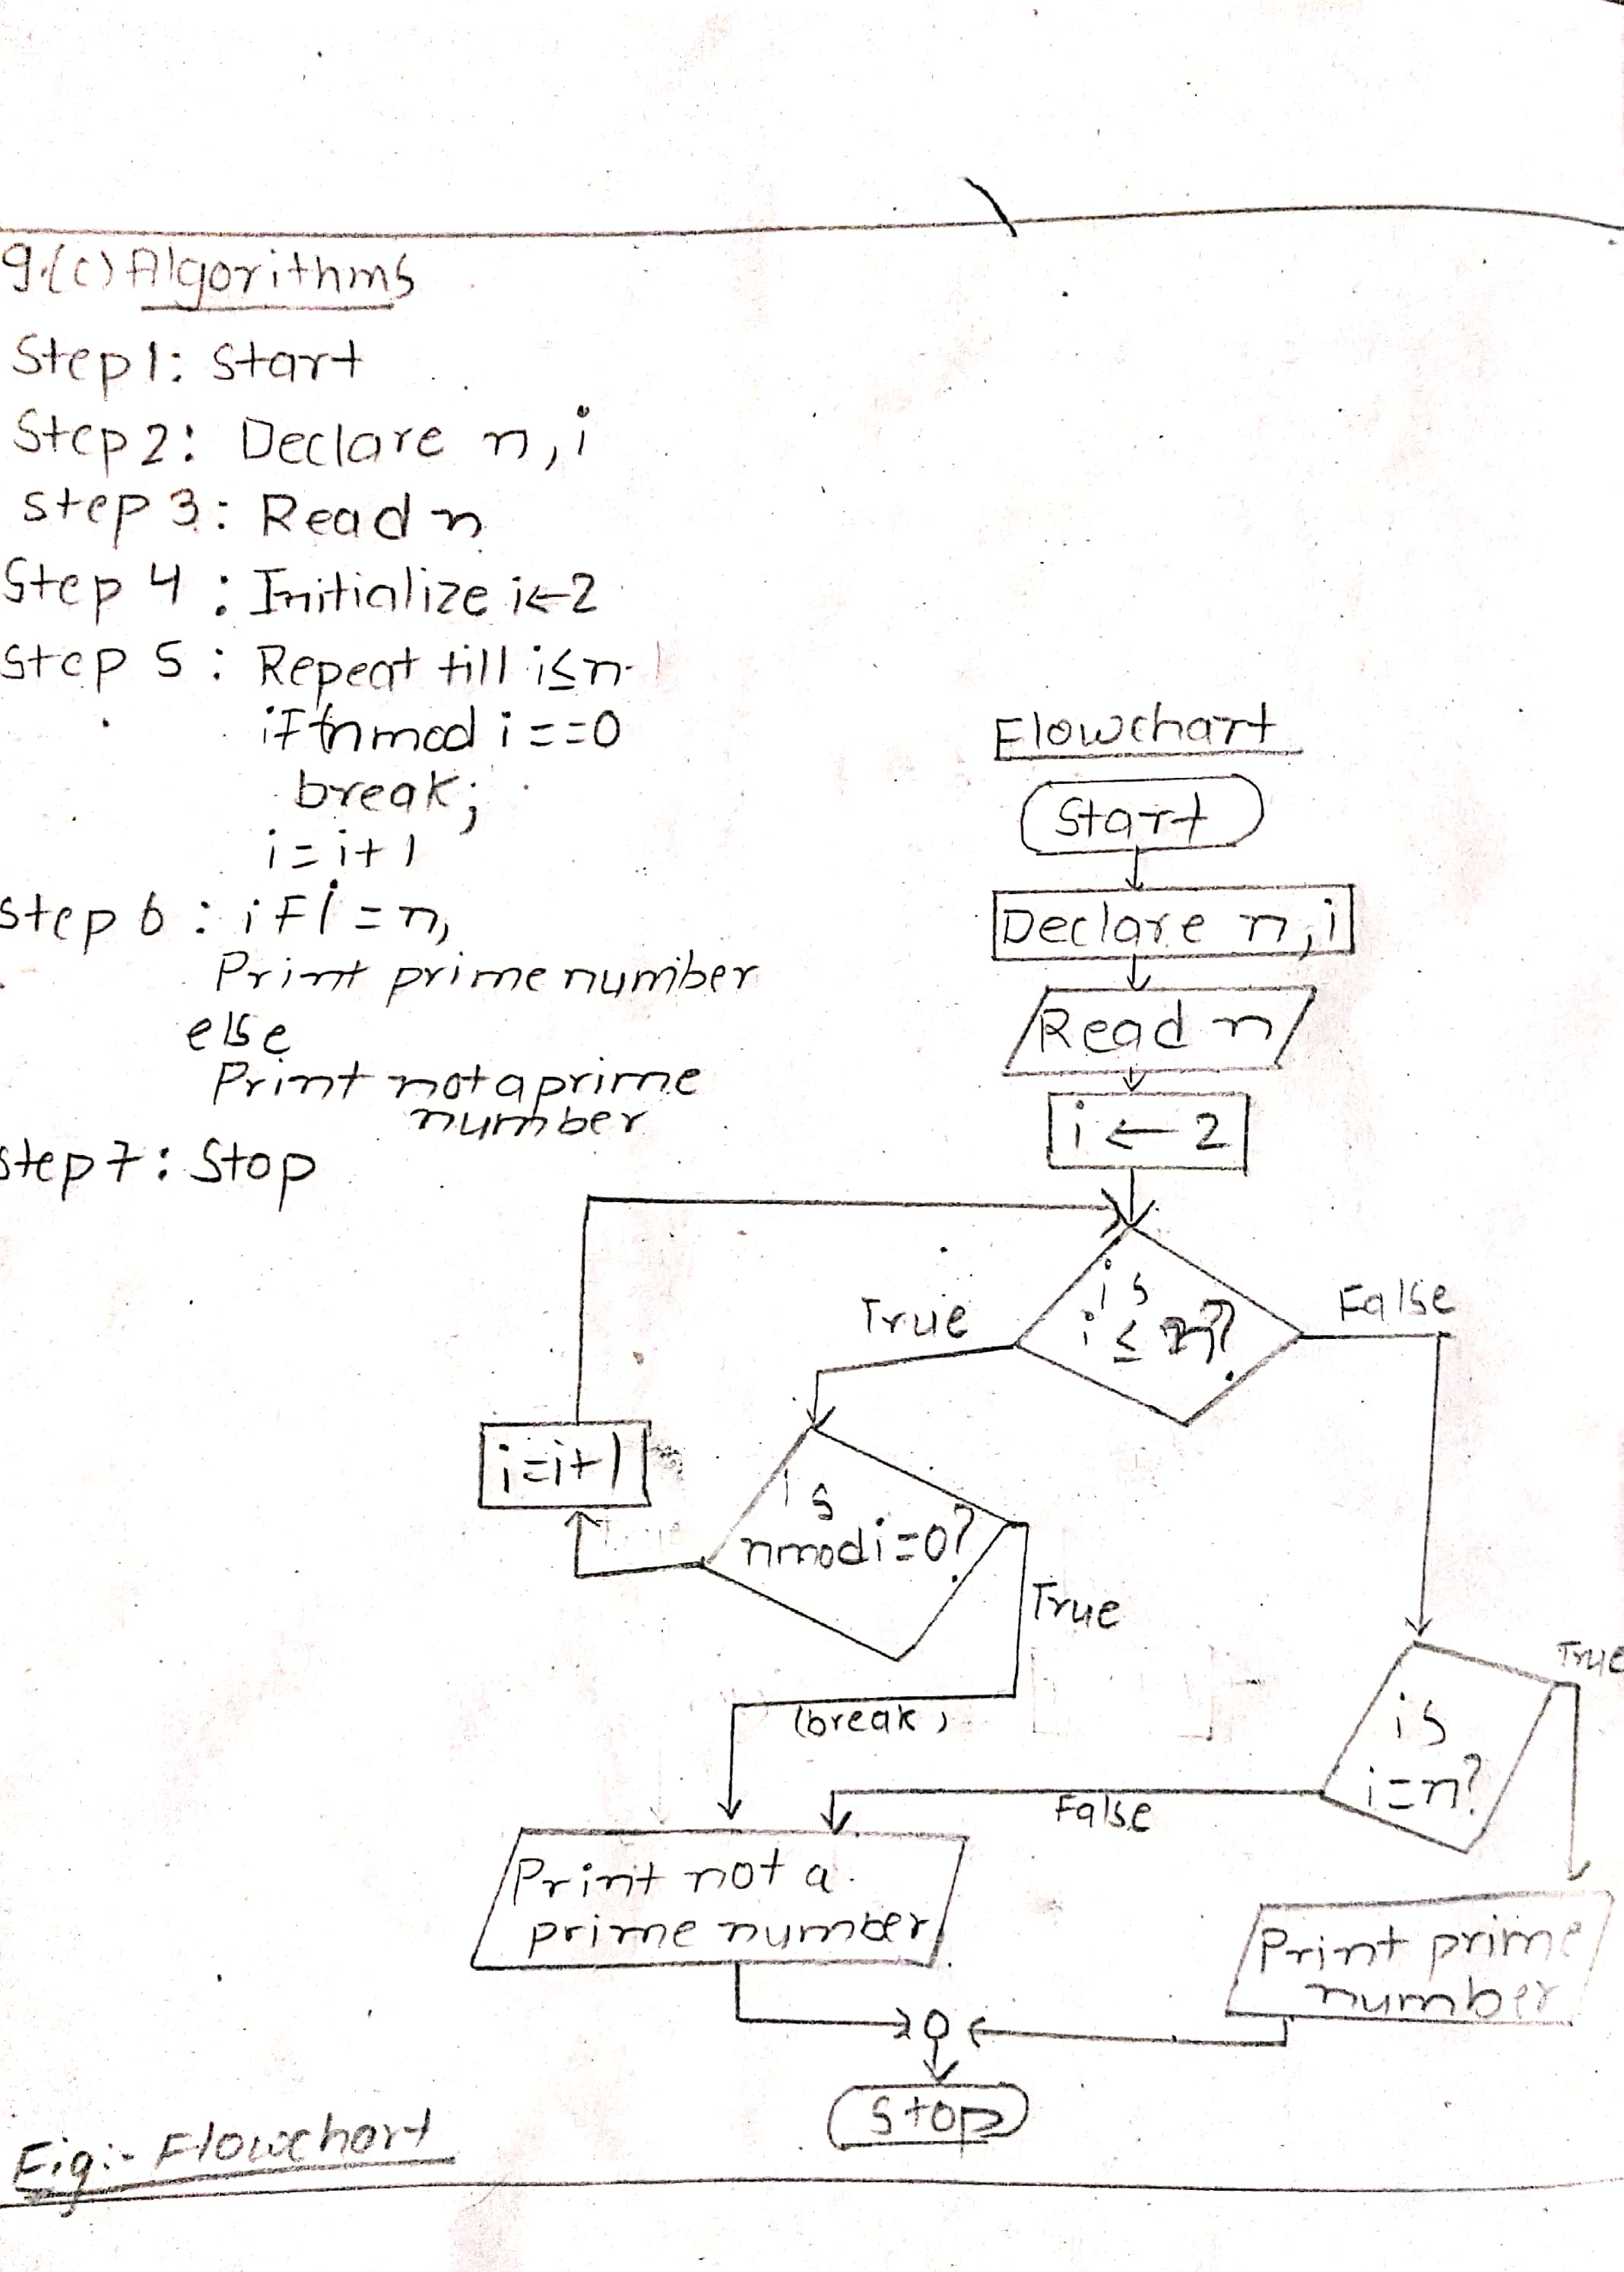 9.(c) Algorithms
Step 1: Start
Step 2: Declare n, i
Step 3: Read n
Step 4: Initialize i←2
Step 5: Repeat till i≤n-1
if n mod i==0
break;
i=i+1
Step 6: if i=n,
Print prime number
else
Print not a prime
number
Step 7: Stop
Flowchart
Start
Declare n, i
Read n
i ← 2
is
i ≤ n?
True
False
i=i+1
is
n mod i=0?
True
(break)
is
i=n?
True
False
Print not a
prime number
Print prime
number
Stop
Fig:- Flowchart